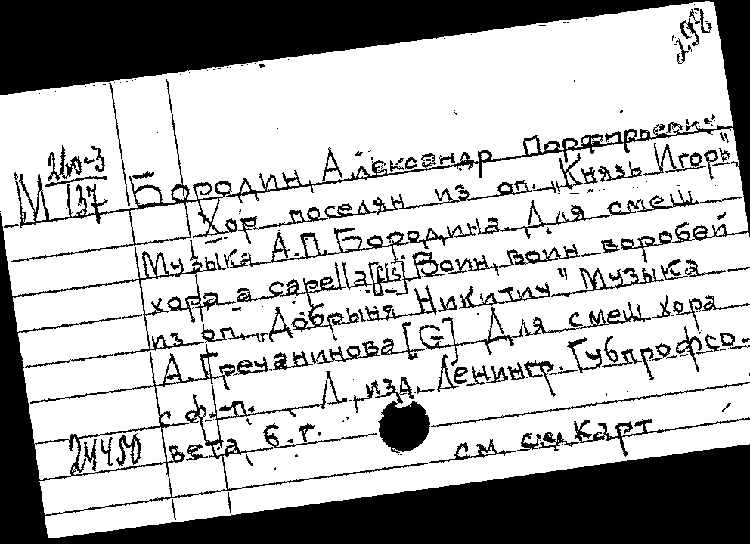 298
М 260-3/137
Бородин, Александр Порфирьевич
Хор поселян из оп. „Князь Игорь"
Музыка А.П. Бородина. Для смеш
хора a capella [fis] Воин, воин воробей
из оп. „Добрыня Никитич" Музыка
А. Гречанинова [G] Для смеш хора
с ф.-п. Л., изд. Ленингр. Губпрофсо-
24450 вета, б.г.
см. карт.